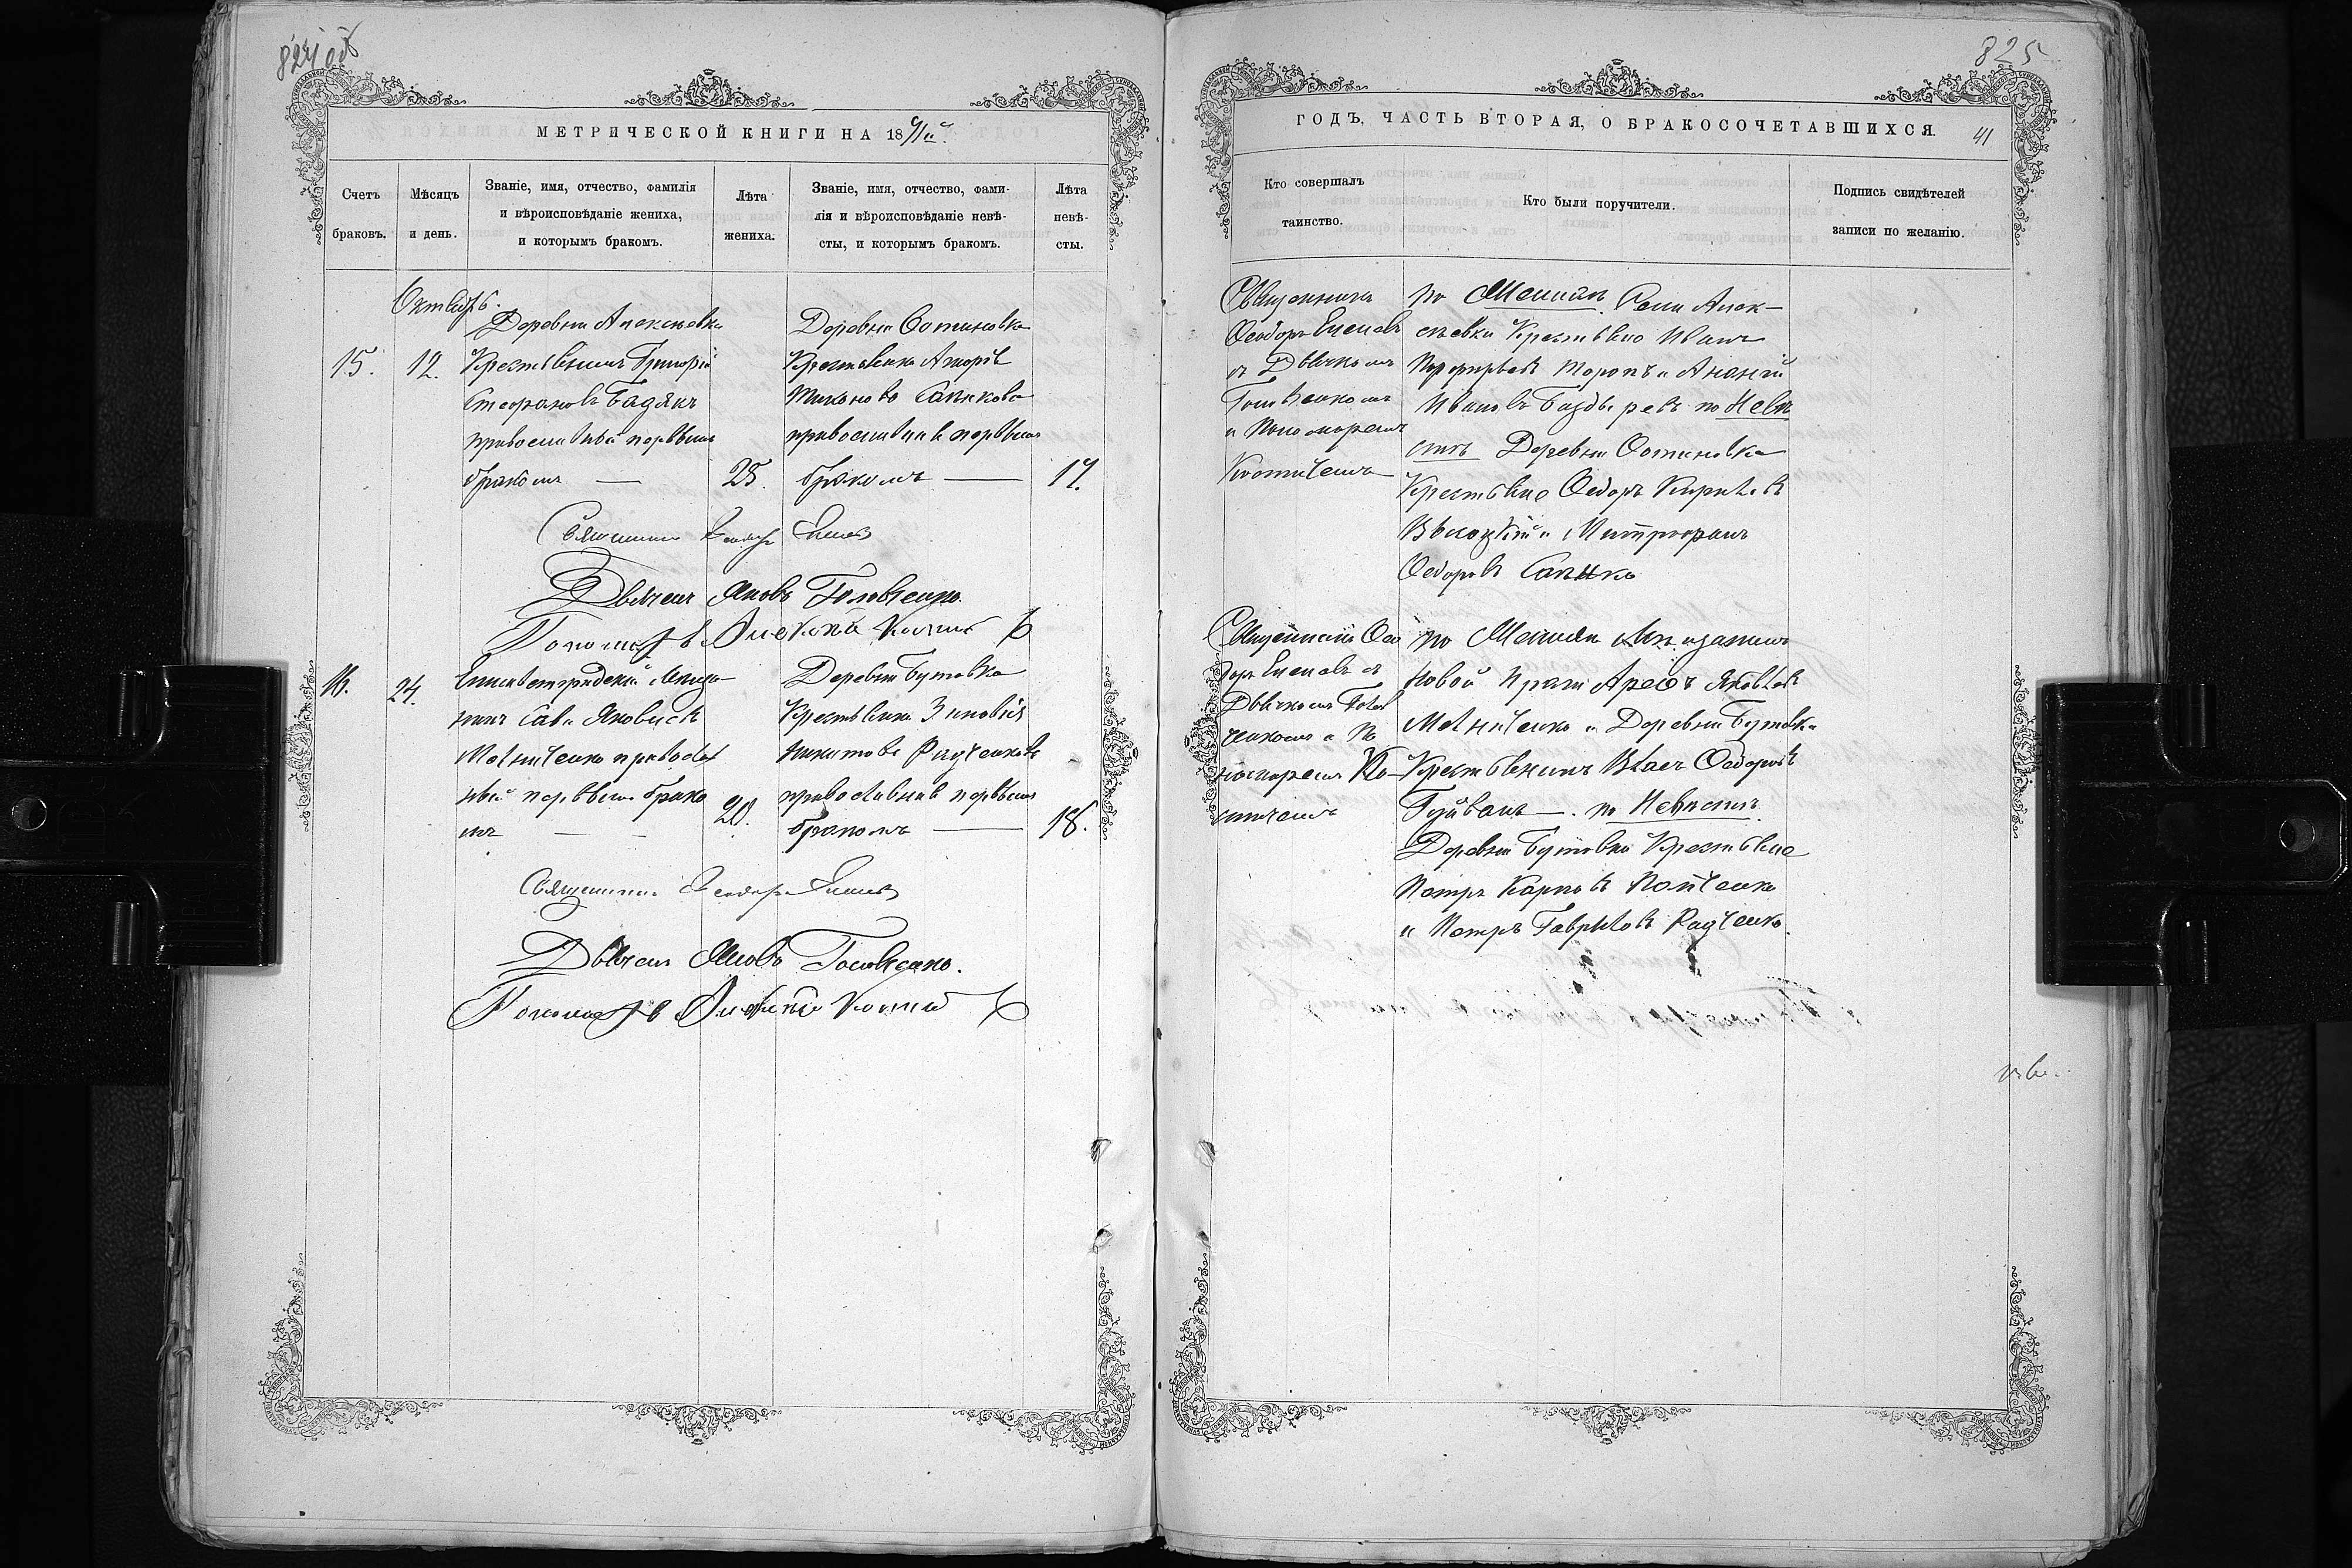 824 об
МЕТРИЧЕСКОЙ КНИГИ НА 1891й.
Счетъ браковъ.
Мѣсяцъ и день.
Званіе, имя, отчество, фамилія
и вѣроисповѣданіе жениха,
и которымъ бракомъ.
Лѣта жениха.
Званіе, имя, отчество, фами-
лія и вѣроисповѣданіе невѣ-
сты, и которымъ бракомъ.
Лѣта невѣ-
сты.
Октябрь.
15.
12.
Деревни Алексѣевки
Крестьянинъ Григорій
Стефановъ Бадякъ
православный первымъ
бракомъ —
25.
Деревни
Крестьянка
Тихонова Сапикова
православная первымъ
бракомъ —
17.
Священникъ Ѳеодоръ
Дьячекъ Яковъ Головченко.
Пономарь Алексѣй
16.
24.
Елисаветградскій Мѣща-
нинъ Сава Яковлевъ
Мельниченко православ
ный первымъ брако
мъ — —
20.
Деревни Бутовки
Крестьянка Зиновія
Никитова Радченкова
православная первымъ
бракомъ —
18.
Священникъ Ѳеодоръ
Дьячекъ Яковъ Головченко.
Пономарь Алексѣй
825
ГОДЪ, ЧАСТЬ ВТОРАЯ, О БРАКОСОЧЕТАВШИХСЯ.
41
Кто совершалъ
таинство.
Кто были поручители.
Подпись свидѣтелей
записи по желанію.
Священникъ
Ѳеодоръ
съ Дьячкомъ
Головченкомъ
и Пономаремъ
по Женихѣ Села Алек-
сѣевки Крестьяне Иванъ
Порфирьевъ Торопъ и Ананій
Ивановъ Баздыревъ по Невѣ
стѣ Деревни
Крестьяне Ѳедоръ Кириловъ
Высоцкій и Митрофанъ
Ѳедоровъ Сапико
Священникъ Ѳео
доръ съ
Дьячкомъ Голов
ченкомъ и По
номаремъ Ко-
по Женихѣ Мѣщанинъ
Новой Праги Яковлевъ
Мельниченко и Деревни Бутовки
Крестьянинъ Власъ Ѳедоровъ
Гуйванъ —. по Невѣстѣ
Деревни Бутовки Крестьяне
Петръ Карповъ
и Петръ Гавриловъ Радченко.